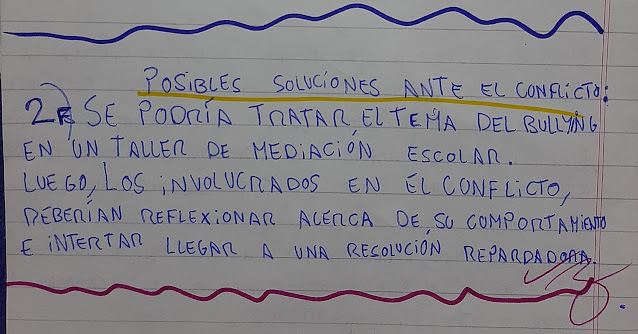 POSIBLES SOLUCIONES ANTE EL CONFLICTO:
2F SE PODRÍA TRATAR EL TEMA DEL BULLYING
EN UN TALLER DE MEDIACIÓN ESCOLAR.
LUEGO, LOS INVOLUCRADOS EN EL CONFLICTO,
DEBERÍAN REFLEXIONAR ACERCA DE SU COMPORTAMIENTO
E INTERTAR LLEGAR A UNA RESOLUCIÓN REPARDADORA.